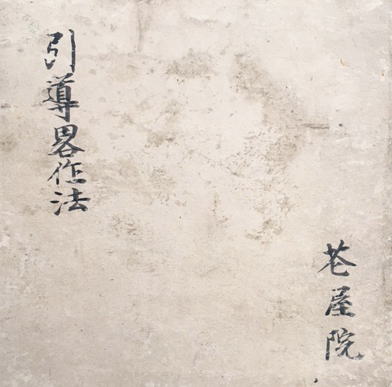 引導畧作法
苍屋院